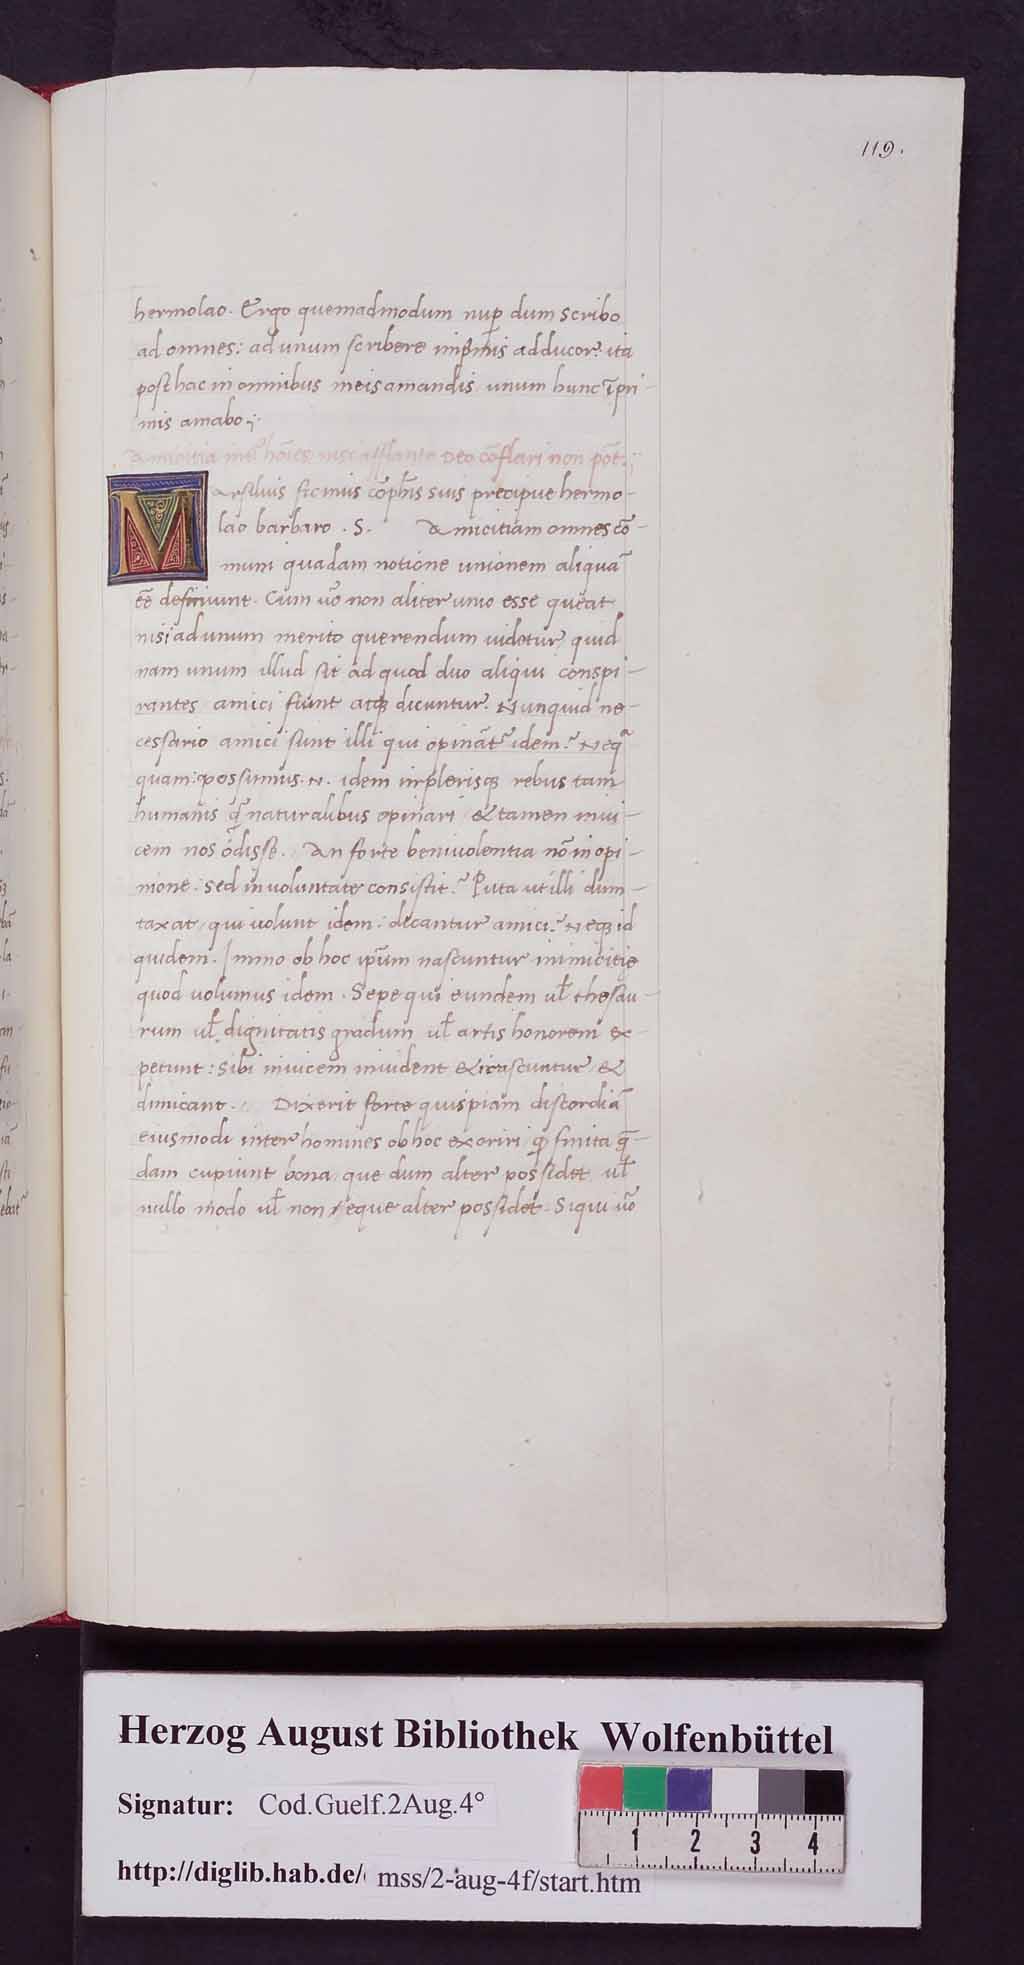 119.
hermolao. Ergo quemadmodum nuꝑ dum scribo
ad omnes: ad unum scribere inprimis adducor: ita
posthac in omnibus meis amandis unum hunc ĩpri-
mis amabo.;
Amicitia inter hões nisi afflante Deo cõflari non põt.;
Marsilius ficinus cõphis suis precipue hermo-
lao barbaro. S. Amicitiam omnes cõ-
muni quadam notione unionem aliquã
eẽ definiunt. Cum uõ non aliter unio esse queat
nisi ad unum merito querendum uidetur, quid
nam unum illud sit ad quod duo aliqui conspi-
rantes amici fiunt atqꝫ dicuntur. Nunquid ne-
cessario amici sunt illi qui opinãt̃ idem? Neq̃
quam: possumus .N. idem in plerisqꝫ rebus tam
humanis q̃ naturalibus opinari / & tamen inui-
cem nos odisse. An forte beniuolentia nõ in opi-
nione: sed in uoluntate consistit? Puta ut illi dum-
taxat / qui uolunt idem: dicantur amici? Neqꝫ id
quidem. Immo ob hoc ipsũm nascuntur inimicitię
quod uolumus idem. Sepe qui eundem ul̃ thesau-
rum ul̃ dignitatis gradum ul̃ artis honorem ex-
petunt: sibi inuicem inuident & irascuntur / &
dimicant. Dixerit forte quispiam discordiã
eiusmodi inter homines ob hoc exoriri / ꝙ finita q̃-
dam cupiunt bona / que dum alter possidet / ul̃
nullo modo ul̃ non eque alter possidet. Siqui uõ
Herzog August Bibliothek Wolfenbüttel
Signatur: Cod.Guelf.2Aug.4°
http://diglib.hab.de/ mss/2-aug-4f/start.htm
1 2 3 4